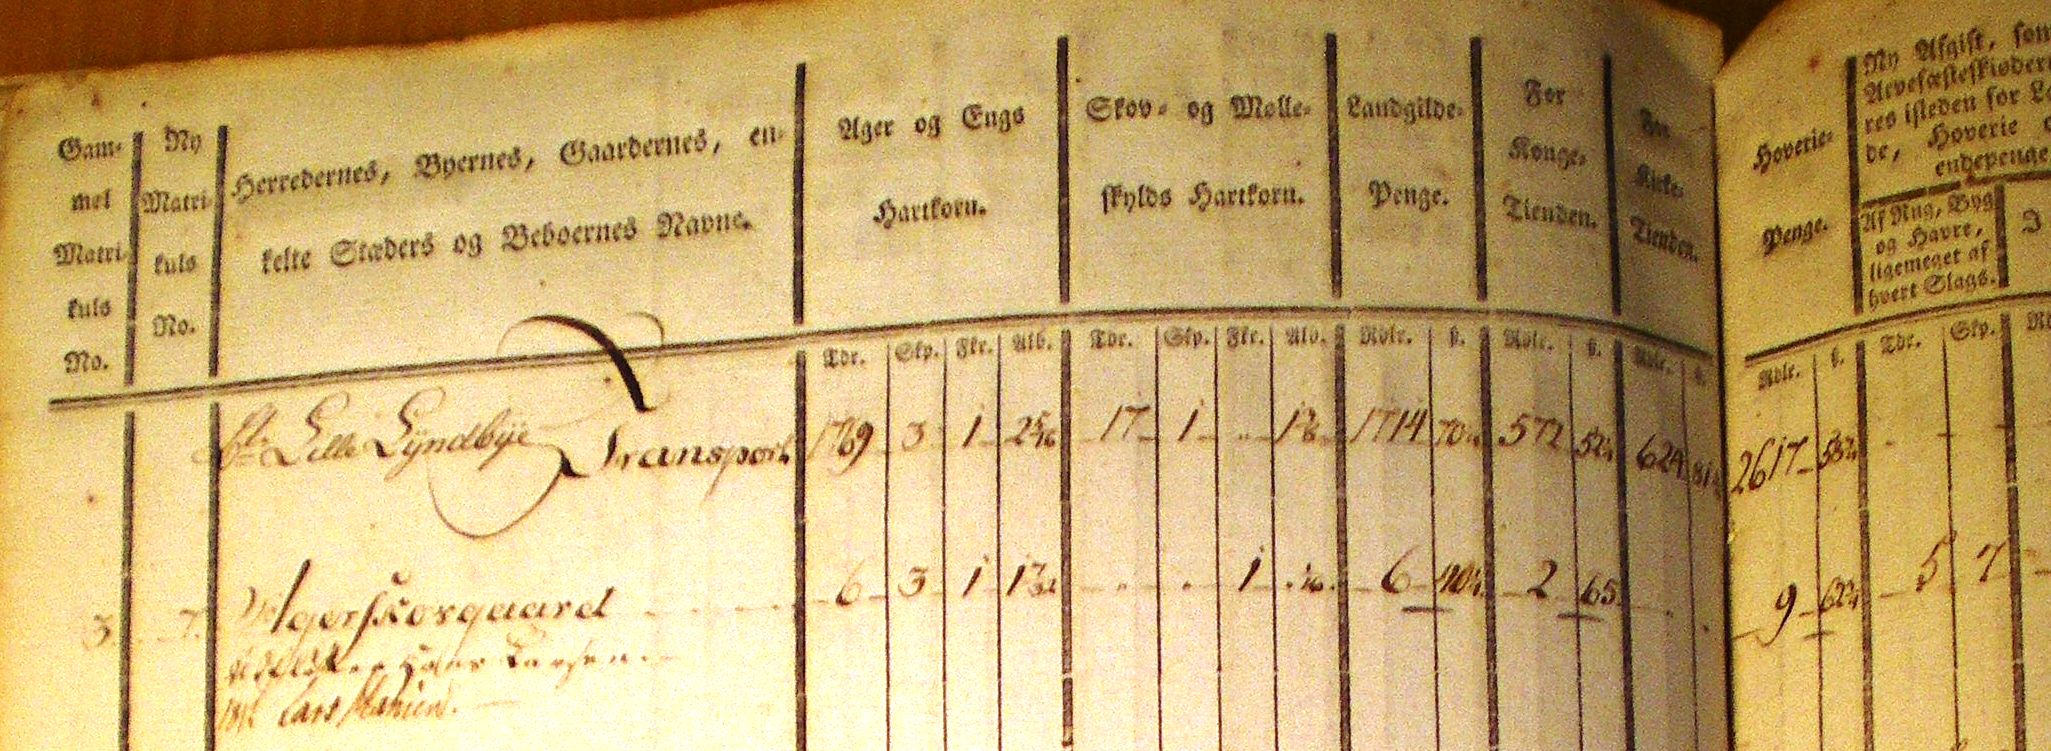 Gam-
mel
Matri-
kuls
No.
Ny
Matri-
kuls
No.
Herredernes, Byernes, Gaardernes, en-
kelte Stæders og Beboernes Navne.
Ager og Engs
Hartkorn.
Skov- og Mølle-
skylds Hartkorn.
Landgilde-
Penge.
For
Konge-
Tienden.
For
Kirke-
Tienden.
Hoverie-
Penge.
Ny Afgift, som
Arvefæsteskiøder
res isteden for La
de, Hoverie o
endepenge
Af Rug, Byg
og Havre,
ligemeget af
hvert Slags.
I
Tdr. Skp. Fkr. Alb. Tdr. Skp. Fkr. Alb. Rdlr. ß. Rdlr. ß. Rdlr. ß. Rdlr. ß. Tdr. Skp. Rd
Lille Lyndbye Transport 1769 3 1 17 1 1714 572 624 2617
3 7. Agerskovgaard 6 3 1 1 6 2 65 9 5 7
Hans Larsen
1812 Lars